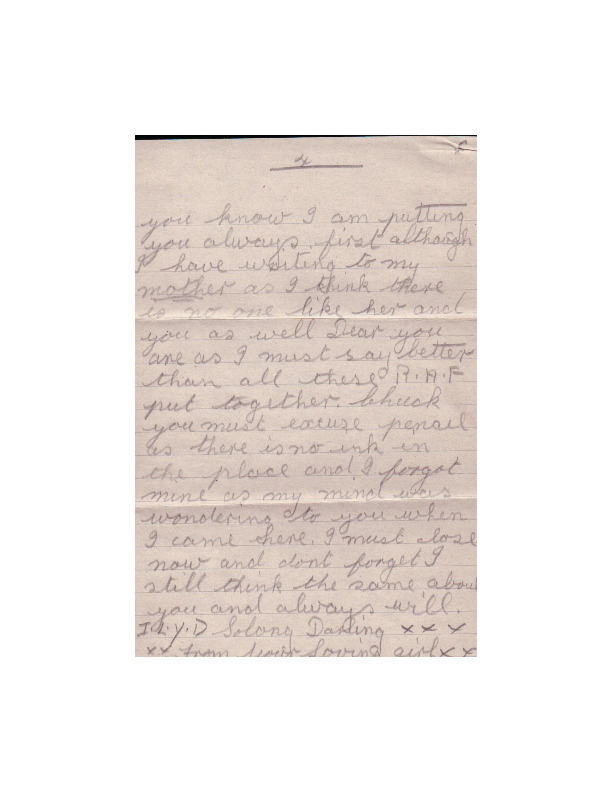 4
you know I am putting
you always. first although
I have writing to my
mother as I think there
is no one like her and
you as well Dear you
are as I must say better
than all these R.A.F
put together. Chuck
you must excuse pencil
as there is no ink in
the place and I forgot
mine as my mind was
wondering to you when
I came here. I must close
now and dont forget I
still think the same about
you and always will.
I.L.Y.D Solong Darling x x x
x x from your loving girl x x